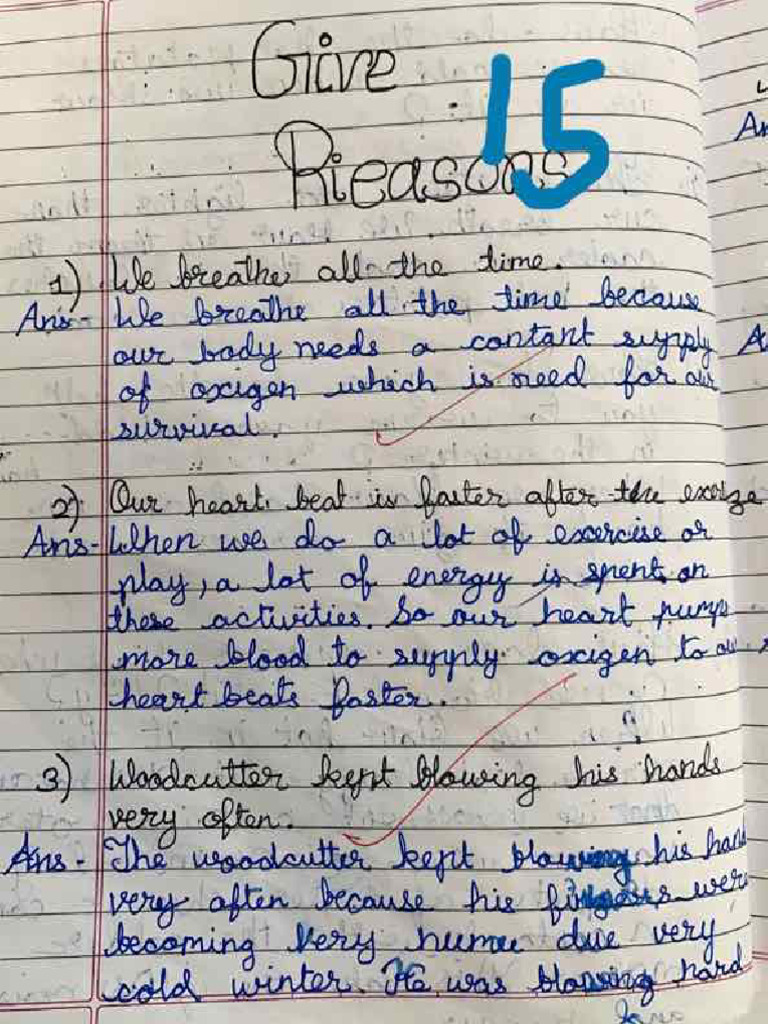 Give
15
Reasons
1) We breathe all the time.
Ans- We breathe all the time because
our body needs a contant supply
of oxigen which is need for our
survival.
2) Our heart beat is faster after the
Ans- When we do a lot of exercise or
play, a lot of energy is spent on
these activities. So our heart pump
more blood to supply oxigen to
heart beats faster.
3) Woodcutter kept blowing his hands
very often.
Ans - The woodcutter kept blowing his han
very often because his were
becoming very due very
cold winter. He was blowing hard
An
A